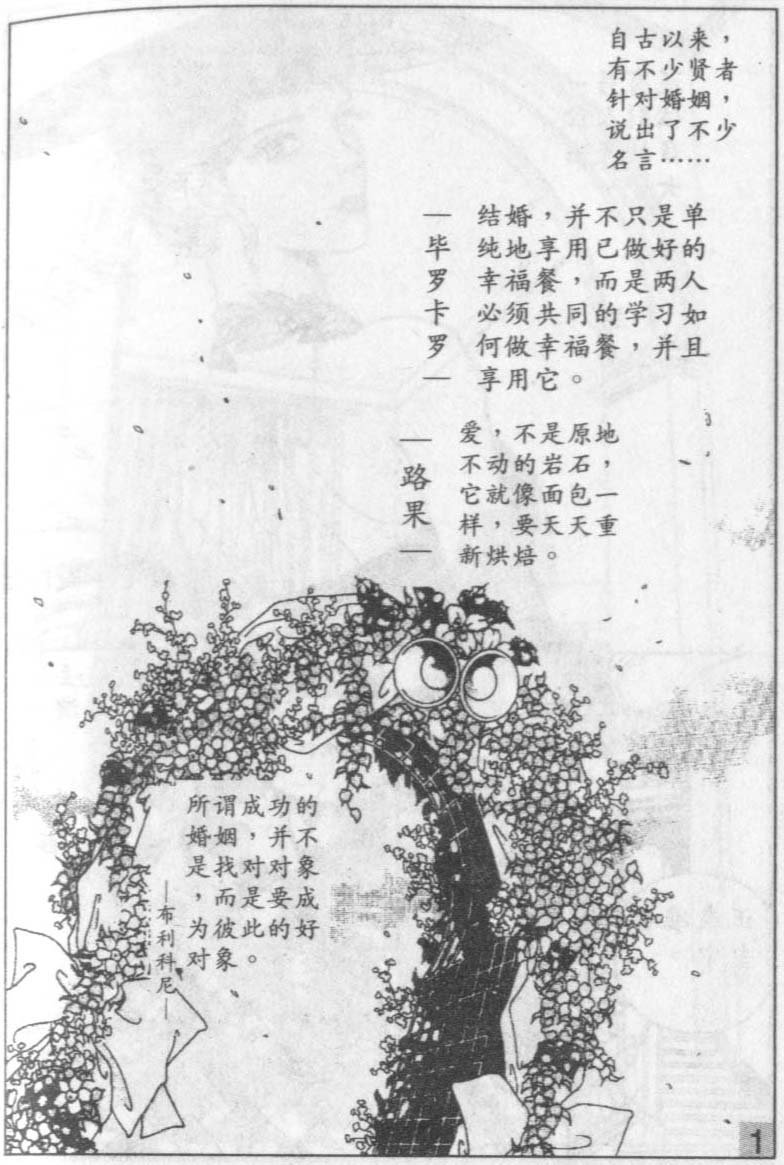 自古以来，
有不少贤者
针对婚姻，
说出了不少
名言……
结婚，并不只是单
纯地享用已做好的
幸福餐，而是两人
必须共同的学习如
何做幸福餐，并且
享用它。
—毕罗卡罗—
爱，不是原地
不动的岩石，
它就像面包一
样，要天天重
新烘焙。
—路果—
所谓成功的
婚姻，并不
是找对对象
，而是要成
为彼此的好
对象。
—布利科尼—
1